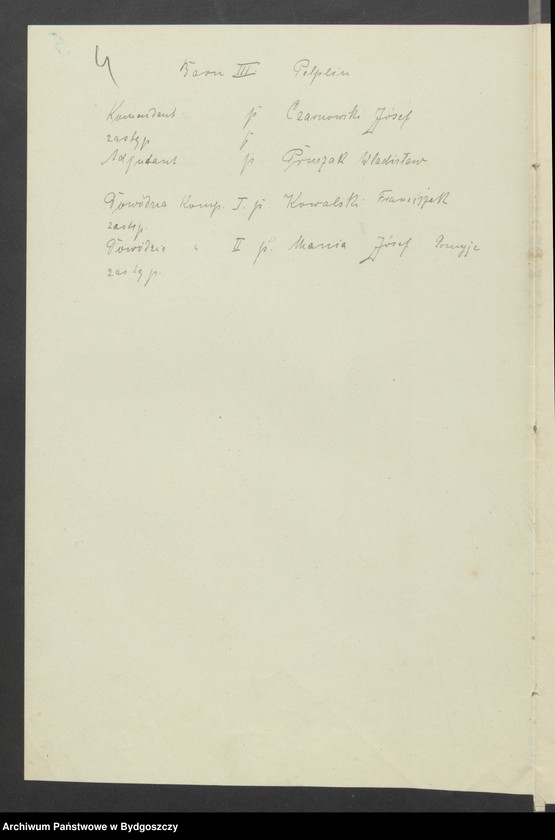 4
Baon III. Pelplin
Komendant p. Czarnowski Józef
zastęp p.
Adjutant p. Pruszak Władisław
Dowódca Komp. I p. Kowalski Franciszek
zastp.
Dowódca " II p. Mania Józef Pomyje
zastęp.
Archiwum Państwowe w Bydgoszczy